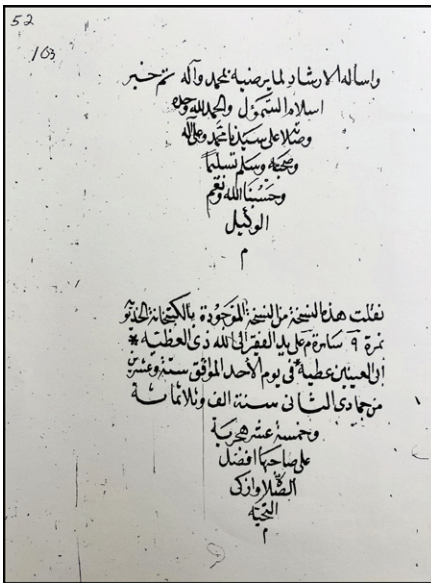 52
103
واسأله الارشاد لما يرضيه بمحمد وآله تم خبر
اسلام السمؤل والحمد لله وحده
وصلا على سيدنا محمد وعلى آله
وصحبه وسلم تسليماً
وحسبنا الله ونعم
الوكيل
م
نقلت هذه النسخة من النسخة الموجودة بالكتبخانة الخديويه
نمرة ٩ سايرة م على يد الفقير الى الله ذى العطيه *
ابى العينين عطية * فى يوم الأحد الموٗفق ستة وعشرين
من جمادى الثانى سنة الف وثلاثمائة
وخمسة عشر هجرية
على صاحبها افضل
الصلا وازكى
التحية
م